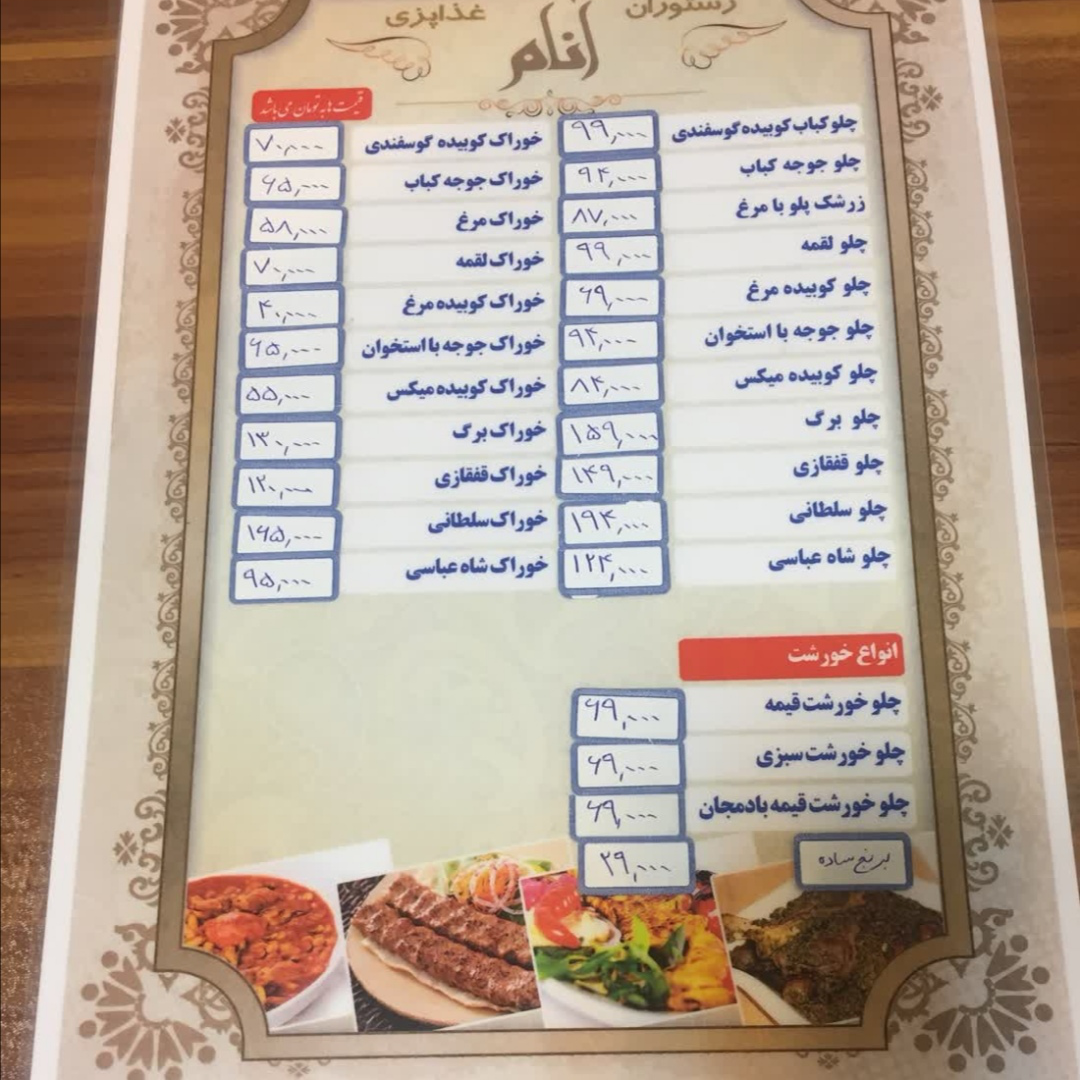 رستوران غذاپزی
آنام
قیمت ها به تومان می باشد
چلو کباب کوبیده گوسفندی ۹۹,۰۰۰ خوراک کوبیده گوسفندی ۷۰,۰۰۰
چلو جوجه کباب ۹۴,۰۰۰ خوراک جوجه کباب ۶۵,۰۰۰
زرشک پلو با مرغ ۸۷,۰۰۰ خوراک مرغ ۵۸,۰۰۰
چلو لقمه ۹۹,۰۰۰ خوراک لقمه ۷۰,۰۰۰
چلو کوبیده مرغ ۶۹,۰۰۰ خوراک کوبیده مرغ ۴۰,۰۰۰
چلو جوجه با استخوان ۹۴,۰۰۰ خوراک جوجه با استخوان ۶۵,۰۰۰
چلو کوبیده میکس ۸۴,۰۰۰ خوراک کوبیده میکس ۵۵,۰۰۰
چلو برگ ۱۵۹,۰۰۰ خوراک برگ ۱۳۰,۰۰۰
چلو قفقازی ۱۴۹,۰۰۰ خوراک قفقازی ۱۲۰,۰۰۰
چلو سلطانی ۱۹۴,۰۰۰ خوراک سلطانی ۱۶۵,۰۰۰
چلو شاه عباسی ۱۲۴,۰۰۰ خوراک شاه عباسی ۹۵,۰۰۰
انواع خورشت
چلو خورشت قیمه ۶۹,۰۰۰
چلو خورشت سبزی ۶۹,۰۰۰
چلو خورشت قیمه بادمجان ۶۹,۰۰۰
برنج ساده ۲۹,۰۰۰